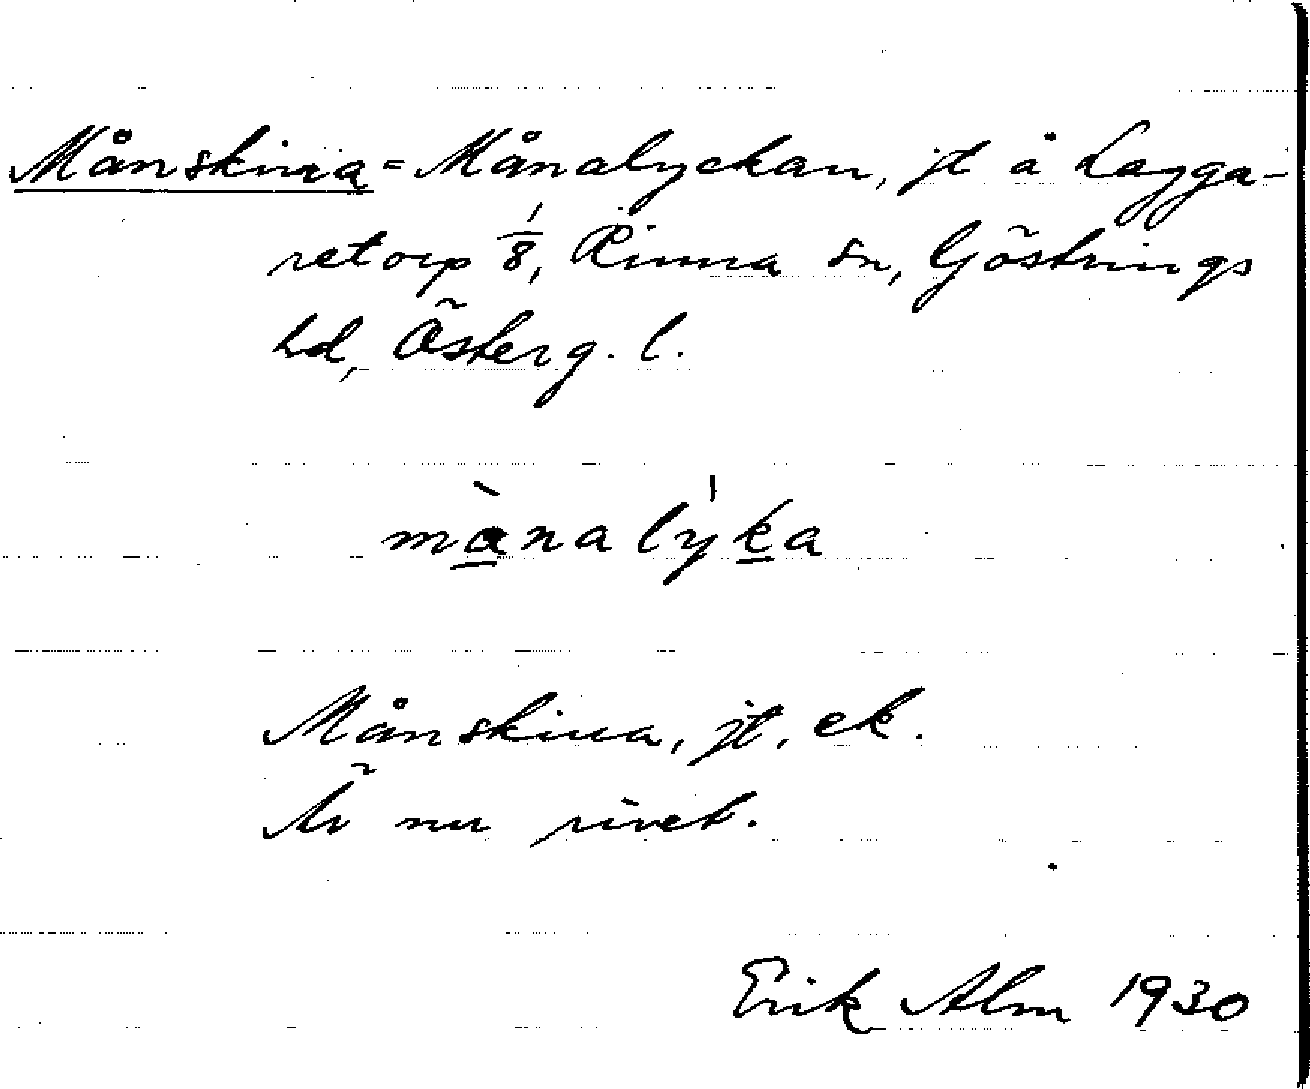 Månskina = Månalyckan, jt å Lagga-
retorp 1/8, Rinna sn, Göstrings
hd, Österg. l.
mànalýka
Månskina, jt, ek.
Är nu rivet.
Erik Alm 1930